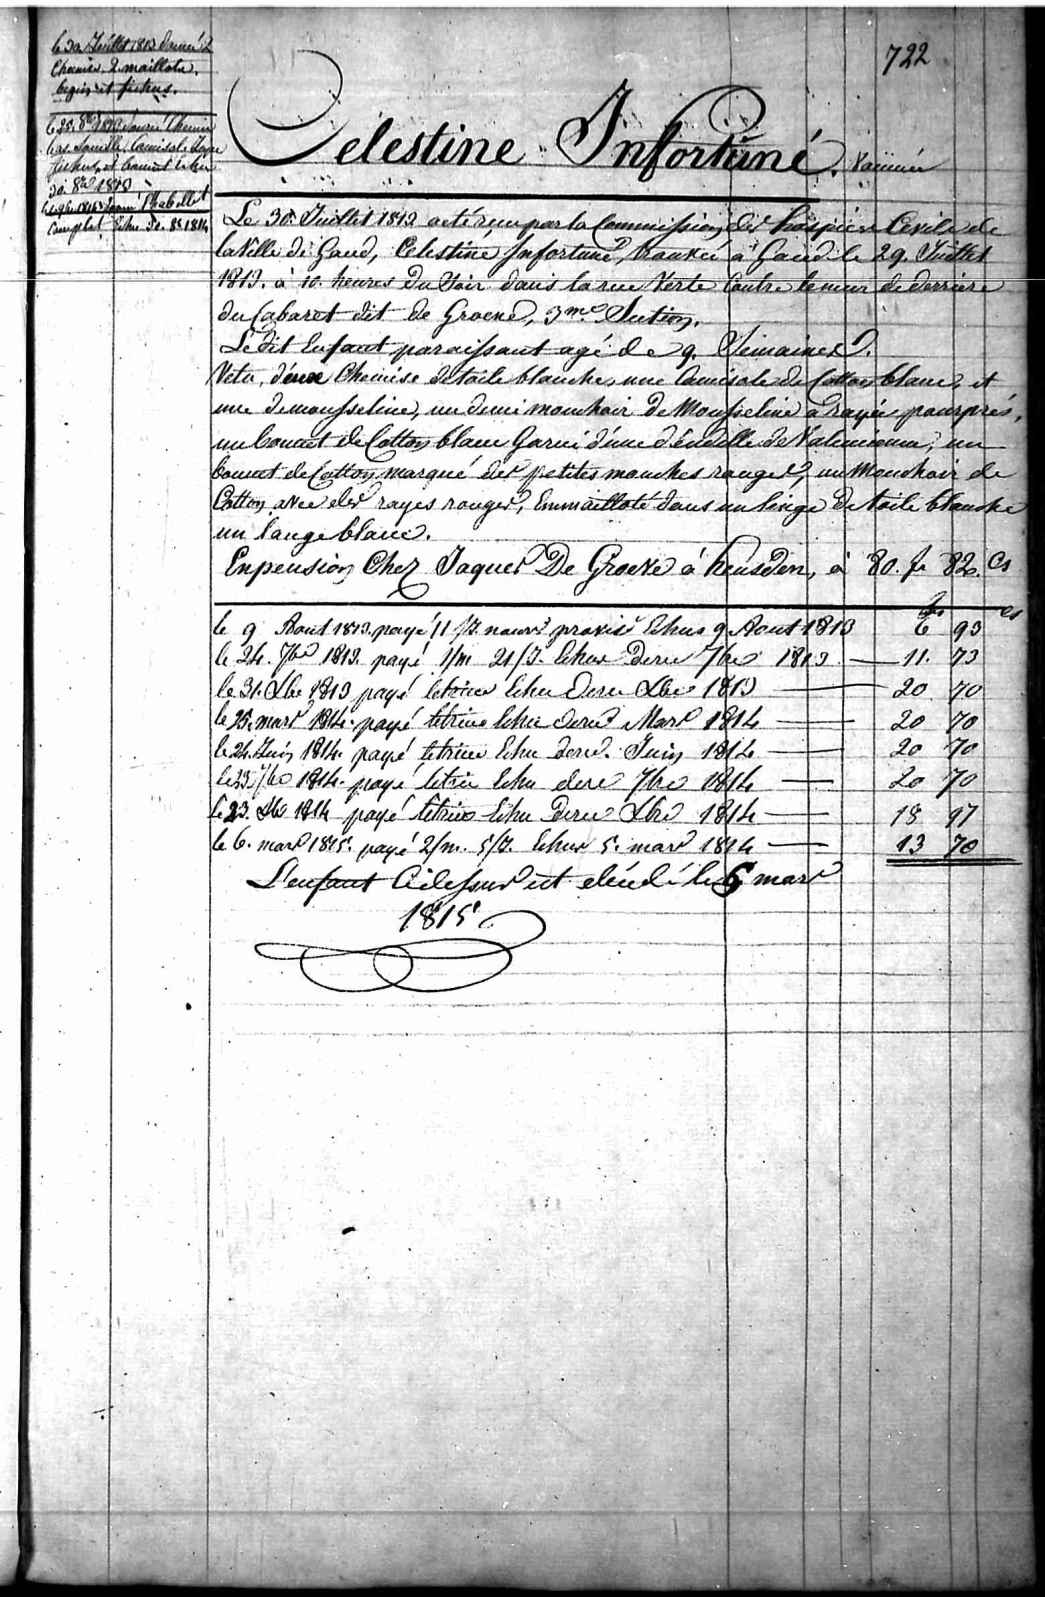 722
le 30 Juillet 1813 donné 2
Chemis. 2 maillots.
beguis et fichus.
le 25. 8bre 1813 donné Chemise
bas Camisole Jupe
fichus et bonnet
30 8bre 1813
donné l'habillet
complet Echu 30. 8bre 1814
Celestine Infortuné. Vacciné
Le 30 Juillet 1813 a été reçu par la Commission des hospices Civils de
la Ville de Gand, Celestine Infortuné, trouvée à Gand le 29. Juillet
1813. à 10. heures du Soir dans la rue Verte contre le mur de derriere
du Cabaret dit de Groene, 3me Section.
Le dit Enfant paraissant agé de 9. Semaines.
Vetu, d'une Chemise de toile blanche, une Camisole de Cotton blanc, et
une de mousseline, un demi mouchoir de Mousseline à rayes pourprés,
un bonnet de Cotton blanc Garni d'une dentelle de Valencienne, un
bonnet de Cotton marqué des petites mouches rouges, un Mouchoir de
Cotton avec des rayes rouges, Emmailloté dans un linge de toile blanche
un lange blanc.
En pension Chez Jaques De Groeve à heusden, à 80. fr 82. Cs
frs cs
le 9 Aout 1813 payé 11/J. nourr provis Echus 9 Aout 1813 6 93
le 24. 7bre 1813. payé 1/m 21/J. Echus Dern 7bre 1813 — 11. 73
le 31. Xbre 1813 payé letrim Echu Dern Xbre 1813 — 20 70
le 25. mars 1814. payé letrim Echu dern Mars 1814 — 20 70
le 24. Juin 1814. payé letrim Echu dern. Juin 1814 — 20 70
le 23. 7bre 1814. payé letrim Echu dern 7bre 1814 — 20 70
le 23. Xbre 1814 payé letrim Echu Dern Xbre 1814 — 18 97
le 6. mars 1815. payé 2/m. 5/J. Echus 5. mars 1814 — 13 70
L'enfant Cidessus est décédé le 6 mars
1815